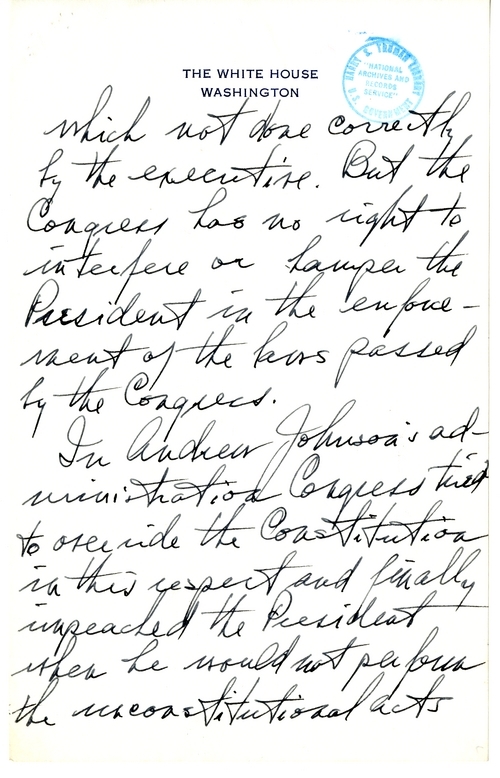 THE WHITE HOUSE
WASHINGTON
HARRY S. TRUMAN LIBRARY
"NATIONAL
ARCHIVES AND
RECORDS
SERVICE"
U.S. GOVERNMENT
which not done correctly
by the executive. But the
Congress has no right to
interfere or hamper the
President in the enforce-
ment of the laws passed
by the Congress.
In Andrew Johnson's ad-
ministration Congress tried
to overide the Constitution
in this respect and finally
impeached the President
when he would not perform
the unconstitutional acts